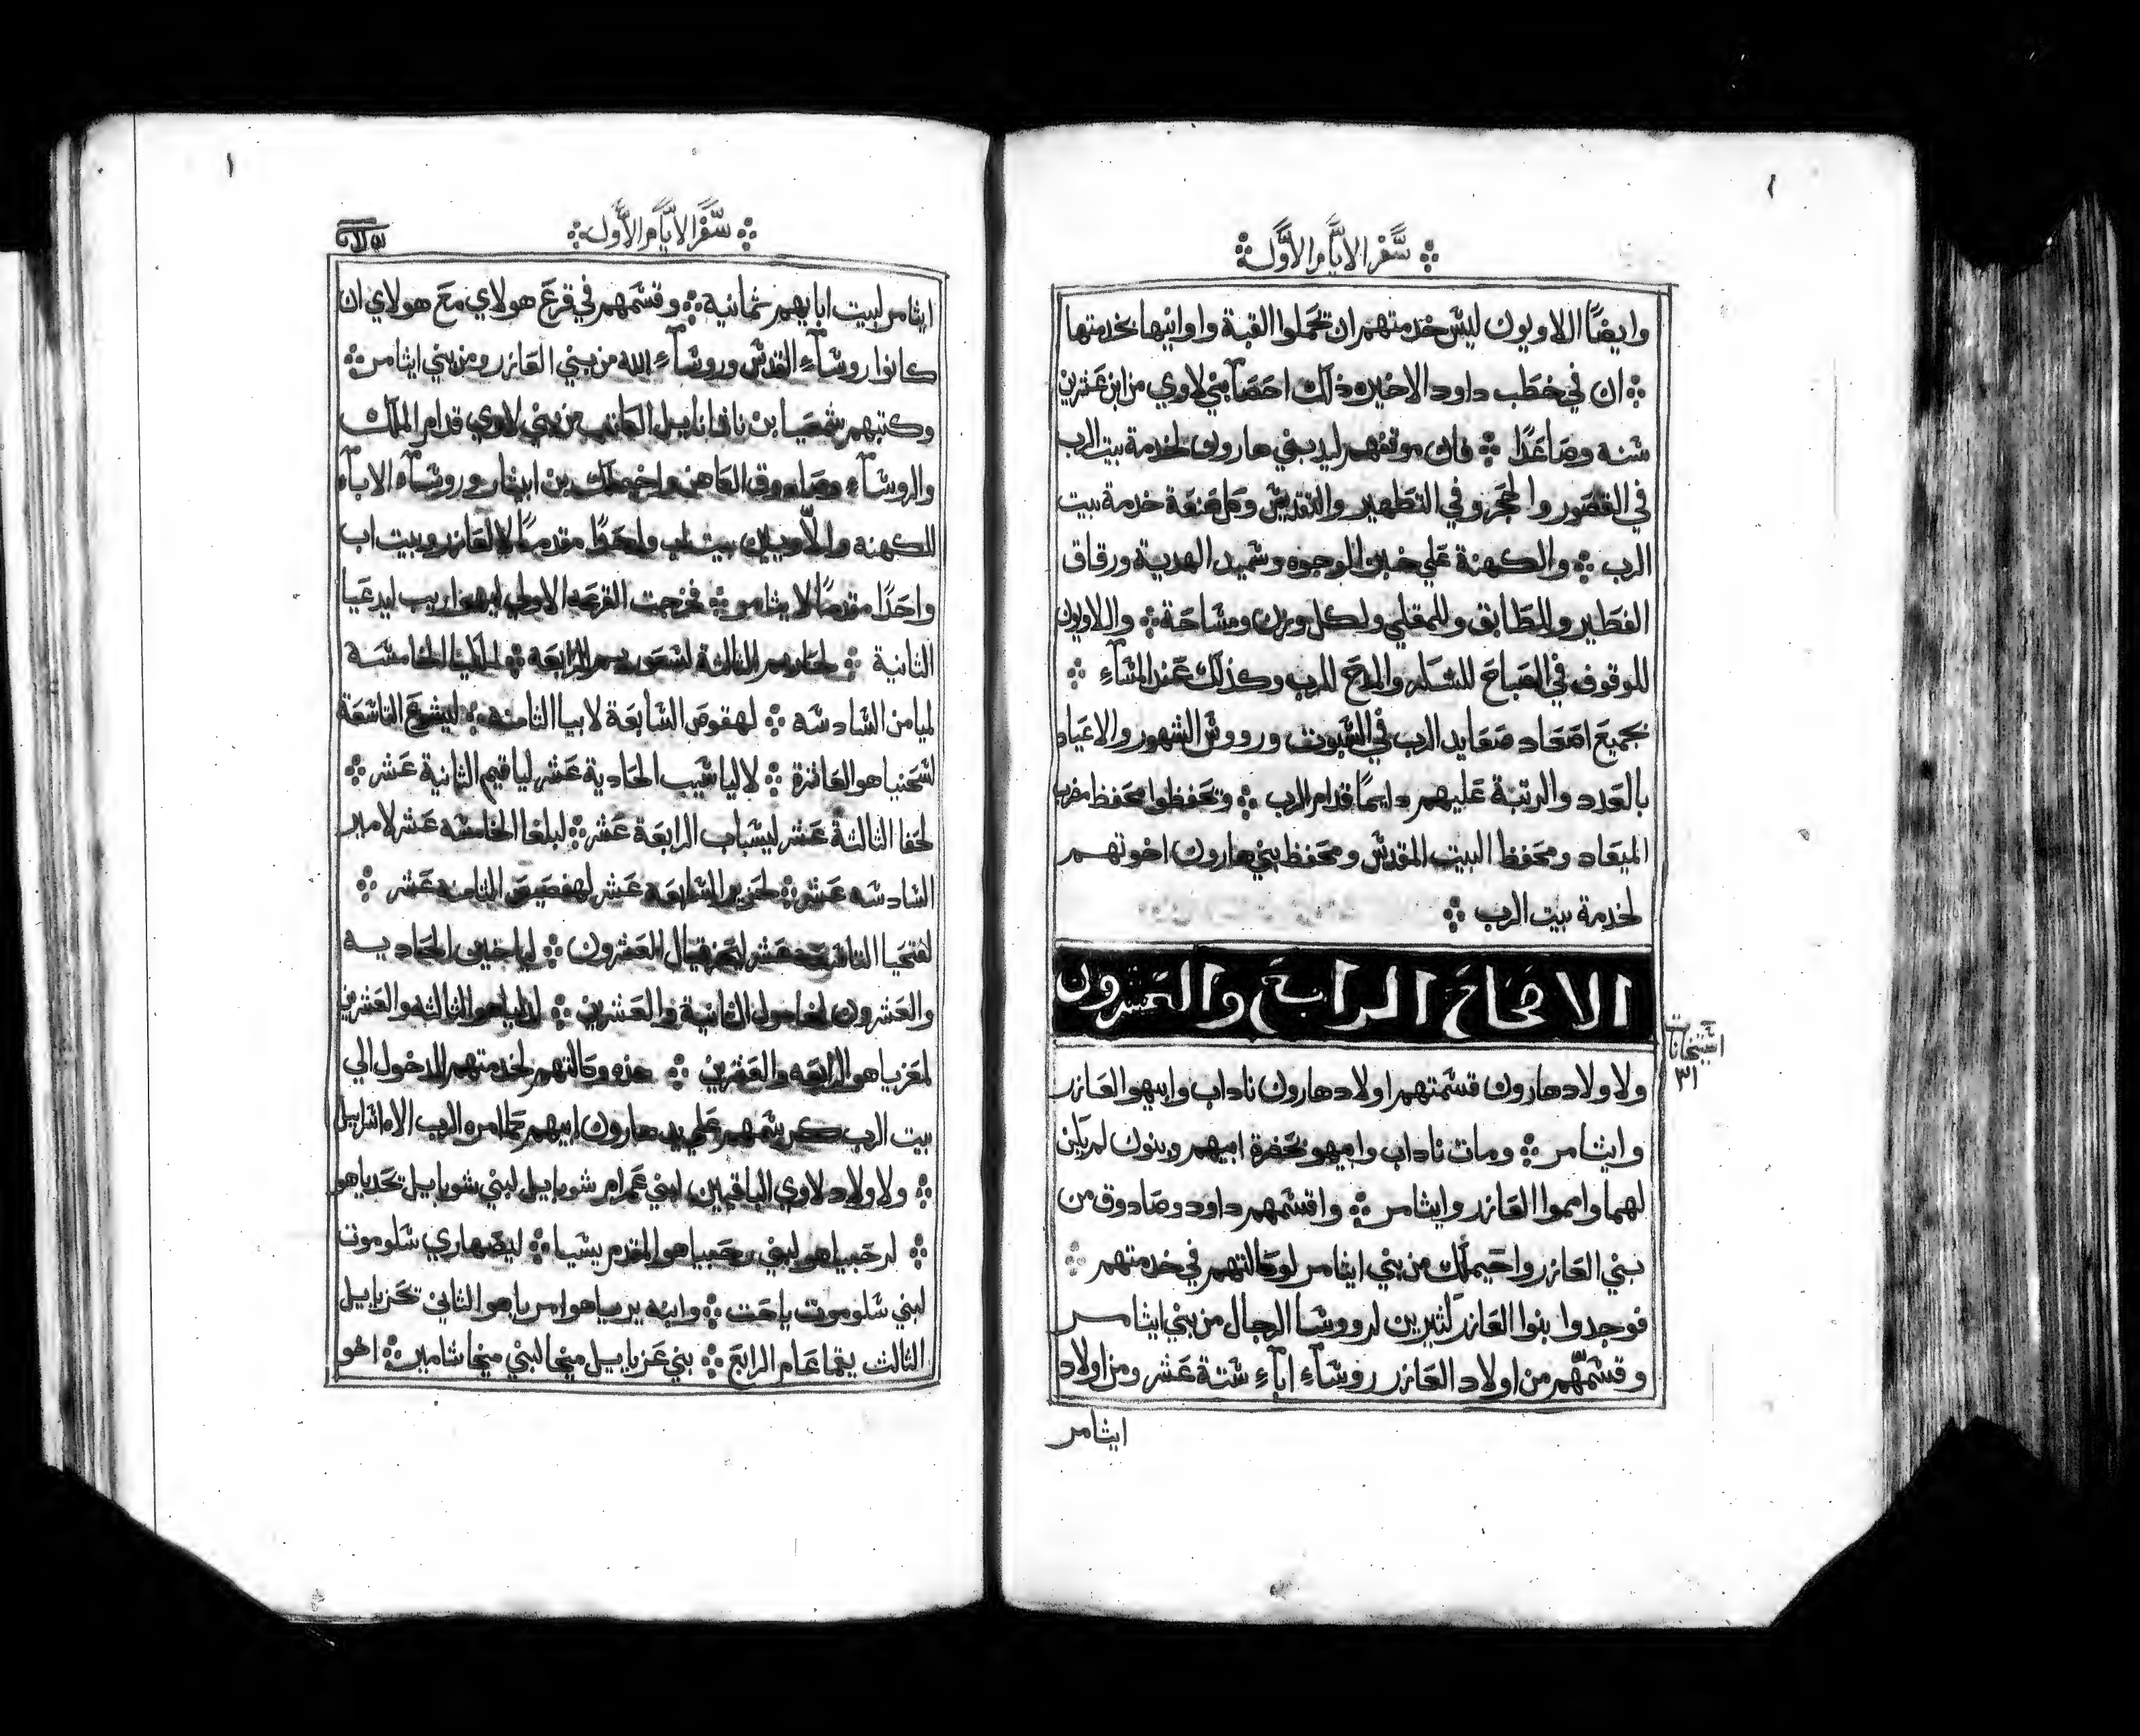 سفر الايام الاول
وايضًا اللاويون ليس خدمتهم ان تحملوا القبة واوانيها بخدمتها
ان في خطب داود الاخيره ذلك احصآ بني لاوي من ابن عشرين
سنه وصاعدًا فان موقفهم ليد بني هارون لخدمة بيت الرب
في القصور والحجر وفي التطهير والتقديس وكل صنعة خدمة بيت
الرب والكهنة علي خبز الوجوه وسميد الهدية ورقاق
الفطير والطابق وللمقلي ولكل وزن ومساحة واللاويون
للوقوف في الصباح للشكر والمدح للرب وكذلك عند المسآء
بجميع اصعاد صعايد الرب في السبوت ورووس الشهور والاعياد
بالعدد والرتبة عليهم دايمًا قدام الرب وتحفظوا محفظ مضرب
الميعاد ومحفظ البيت المقدس ومحفظ بني هارون اخوتهم
لخدمة بيت الرب
الاصحاح الرابع والعشرون
٣١
ولاولاد هارون قسمتهم اولاد هارون ناداب وابيهو العازر
وايثامر ومات ناداب وابيهو بحضرة ابيهم وبنون لم يكن
لهما وامموا العازر وايثامر واقسمهم داود وصادوق من
بني العازر واحيملك من بني ايثامر لوكالتهم في خدمتهم
فوجدوا بنوا العازر كثيرين لرووسا الرجال من بني ايثامر
وقسمهم من اولاد العازر روسآء ابآء ستة عشر ومن اولاد
ايثامر
سفر الايام الاول
ايثامر لبيت ابايهم ثمانية وقسمهم في قرع هولاي مع هولاي ان
كانوا روسآء القدس وروسآء الله من بني العازر ومن بني ايثامر
وكتبهم شمعيا بن ناثانايل الكاتب من بني لاوي قدام الملك
والروسآء وصادوق الكاهن واخيملك بن ابيثار وروسآء الابآء
للكهنه واللاويين بيت اب واحدًا مقدمًا لالعازر وبيت اب
واحدًا مقدمًا لايثامر فخرجت القرعه الاولي ليهواريب ليدعيا
الثانية لحاريم الثالثة لسعوريم الرابعة لملكيا الخامسة
لميامن السادسه لهقوص السابعة لابيا الثامنه ليشوع التاسعة
لشحنياهو العاشرة لالياشيب الحادية عشر لياقيم الثانية عشر
لحفا الثالثة عشر ليشباب الرابعة عشر لبلغا الخامسه عشر لامير
السادسه عشر لحزير السابعه عشر لهفصيص الثامنه عشر
لفتحيا التاسعة عشر لحزقيال العشرون لياخين الحاديه
والعشرون لغامول الثانية والعشرين لدلياهو الثالثه والعشرين
لمعزياهو الرابعه والعشرين هذه وكالتهم لخدمتهم للدخول الي
بيت الرب كرسمهم علي يد هارون ابيهم كما امره الرب الاه اسراييل
ولاولاد لاوي الباقيين لبني عمرام شوبايل لبني شوبايل يحدياهو
لرحبياهو لبني رحبياهو المقدم يشيا ليصهاري شلوموت
لبني شلوموت ياحت وابنه يرياهو امرياهو الثاني يحزيايل
الثالث يقماعام الرابع بني عزيايل ميخا لبني ميخا شامير اخو